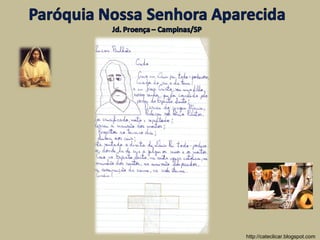 Paróquia Nossa Senhora Aparecida
Jd. Proença – Campinas/SP
Credo
Creio em Deus pai todo-poderoso
criador do céu e da terra
e em Jesus Cristo, seu único filho,
nosso senhor, que foi concebido pelo
poder do Espírito Santo;
foi crucificado, morto e sepultado;
desceu a mansão dos mortos;
ao terceiro dia;
subiu aos céus;
está sentado a direita de Deus Pai todo-poderoso,
donde há de vir a julgar os vivos e os mortos.
Creio no Espírito Santo, na santa igreja católica, na
comunhão dos santos, na remissão dos pecados,
na ressurreição da carne, na vida eterna.
http://cateclicar.blogspot.com